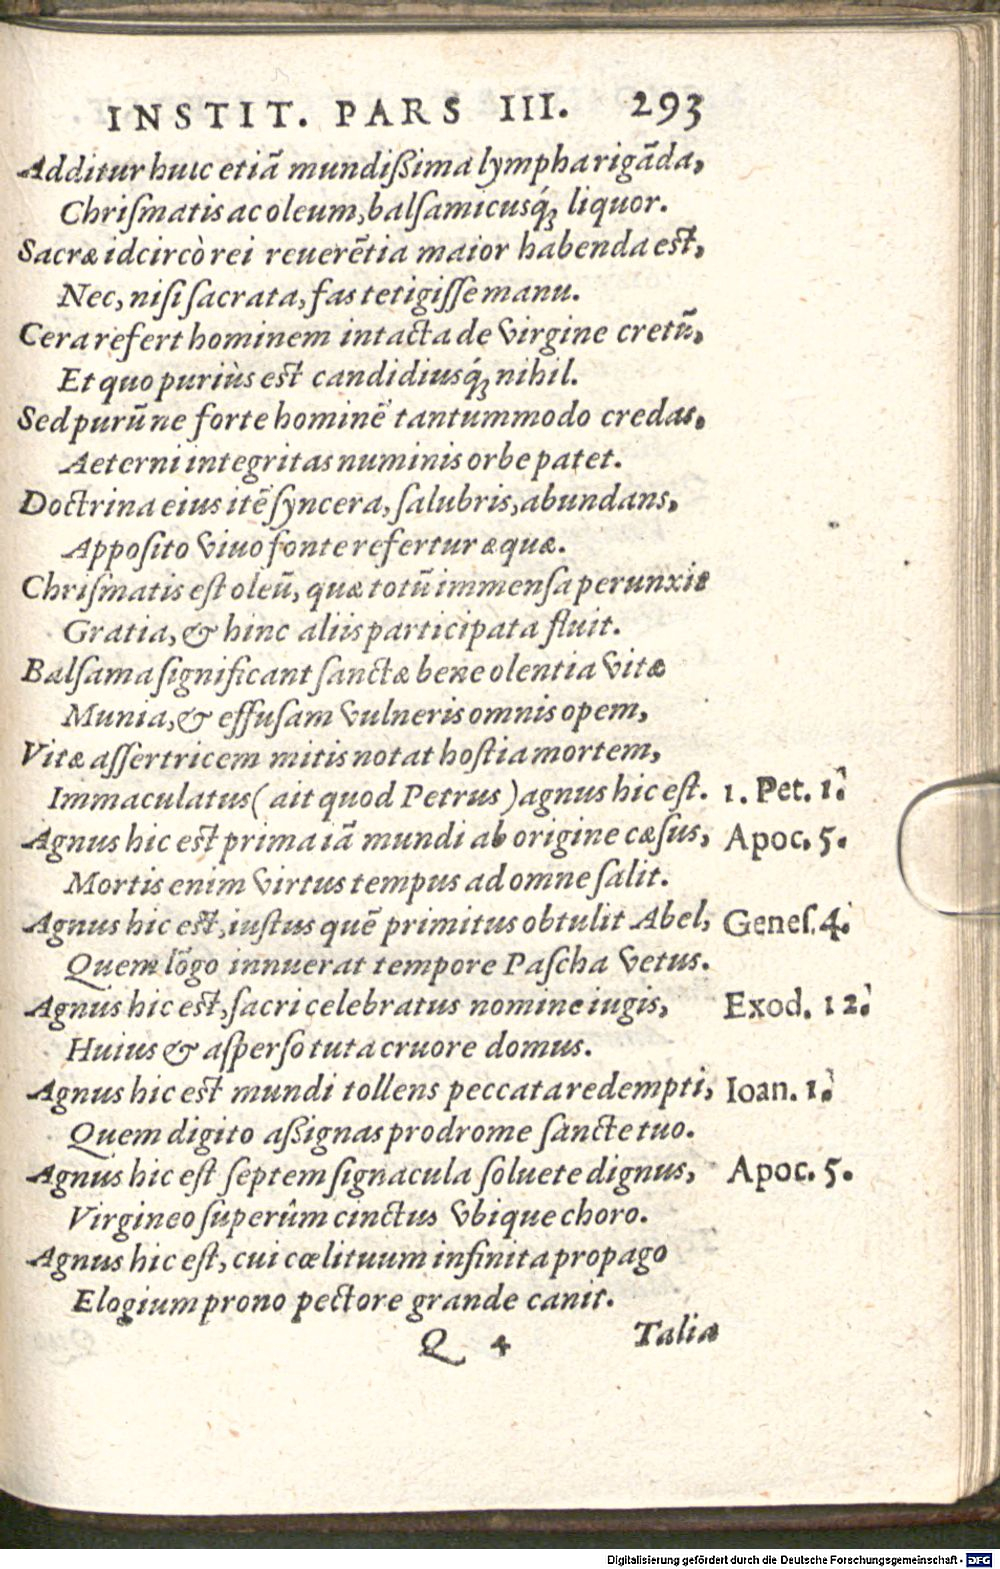 INSTIT. PARS III. 293
Additur huic etiā mundißima lympha rigāda,
Chriſmatis ac oleum, balſamicusq́; liquor.
Sacræ idcircò rei reuerētia maior habenda eſt,
Nec, niſi ſacrata, fas tetigiſſe manu.
Cera refert hominem intacta de virgine cretū,
Et quo puriùs eſt candidiusq́; nihil.
Sed purū ne forte hominē tantummodo credas,
Aeterni integritas numinis orbe patet.
Doctrina eius itē ſyncera, ſalubris, abundans,
Appoſito viuo fonte refertur æquæ.
Chriſmatis eſt oleū, quæ totū immenſa perunxit
Gratia, & hinc aliis participata fluit.
Balſama ſignificant ſanctæ bene olentia vitæ
Munia, & effuſam vulneris omnis opem,
Vitæ aſſertricem mitis notat hoſtia mortem,
Immaculatus (ait quod Petrus) agnus hic eſt. 1. Pet. 1.
Agnus hic eſt prima iā mundi ab origine cæſus, Apoc. 5.
Mortis enim virtus tempus ad omne ſalit.
Agnus hic eſt, iuſtus quē primitus obtulit Abel, Geneſ. 4.
Quem lōgo innuerat tempore Paſcha vetus.
Agnus hic eſt, ſacri celebratus nomine iugis, Exod. 12.
Huius & aſperſo tuta cruore domus.
Agnus hic eſt mundi tollens peccata redempti, Ioan. 1.
Quem digito aßignas prodrome ſancte tuo.
Agnus hic eſt ſeptem ſignacula ſoluete dignus, Apoc. 5.
Virgineo ſuperûm cinctus vbique choro.
Agnus hic eſt, cui cœlituum infinita propago
Elogium prono pectore grande canit.
Q 4 Talia
Digitalisierung gefördert durch die Deutsche Forschungsgemeinschaft - DFG